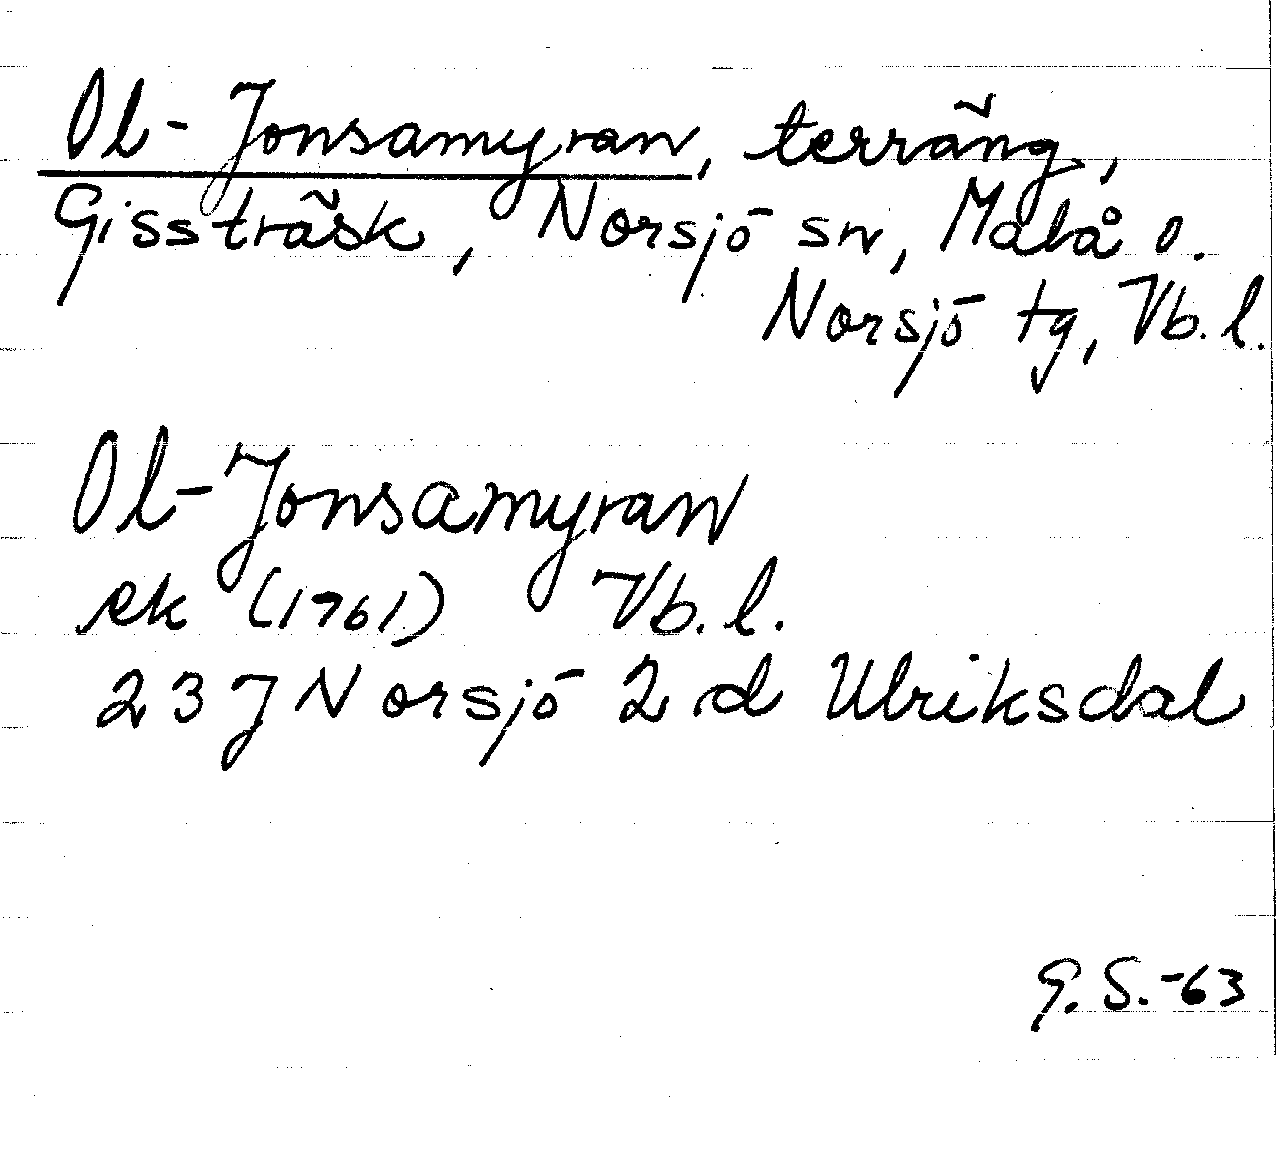 Ol-Jonsamyran, terräng,
Gissträsk, Norsjö sn, Malå o.
Norsjö tg, Vb. l.
Ol-Jonsamyran
ek (1961) Vb. l.
23 J Norsjö 2 d Ulriksdal
G. S. -63